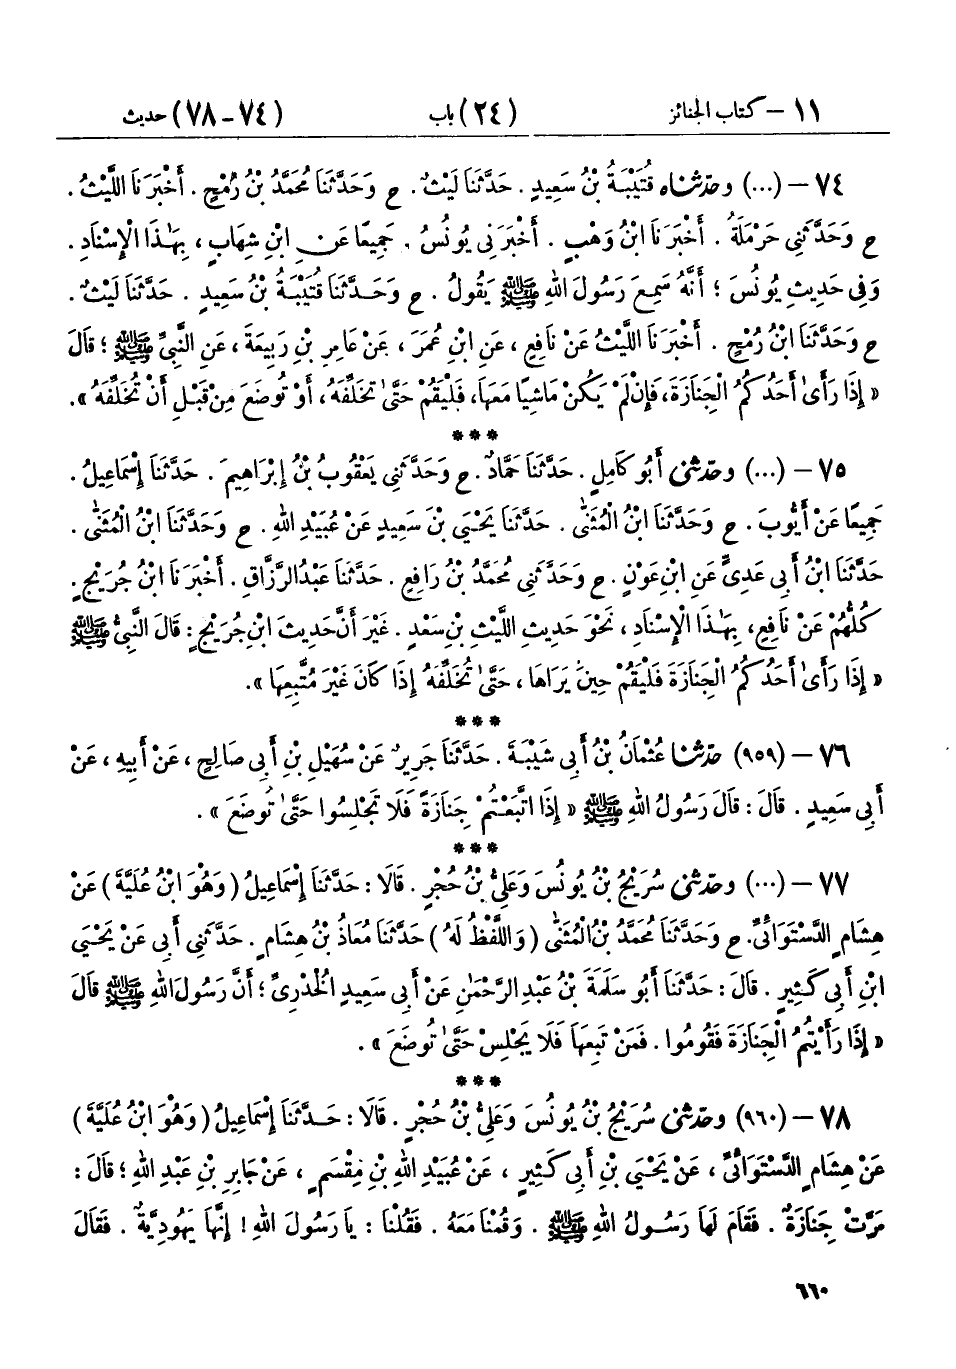 ١١ – كتاب الجنائز (٢٤) باب (٧٤-٧٨) حديث
٧٤ – (...) وحَدَّثَنَاه قُتَيْبَةُ بْنُ سَعِيدٍ. حَدَّثَنَا لَيْثٌ. ح وَحَدَّثَنَا مُحَمَّدُ بْنُ رُمْحٍ. أَخْبَرَنَا اللَّيْثُ.
ح وَحَدَّثَنِي حَرْمَلَةُ. أَخْبَرَنَا ابْنُ وَهْبٍ. أَخْبَرَنِي يُونُسُ. جَمِيعًا عَنِ ابْنِ شِهَابٍ، بِهَٰذَا الْإِسْنَادِ.
وَفِي حَدِيثِ يُونُسَ؛ أَنَّهُ سَمِعَ رَسُولَ اللهِ ﷺ يَقُولُ. ح وَحَدَّثَنَا قُتَيْبَةُ بْنُ سَعِيدٍ. حَدَّثَنَا لَيْثٌ.
ح وَحَدَّثَنَا ابْنُ رُمْحٍ. أَخْبَرَنَا اللَّيْثُ عَنْ نَافِعٍ، عَنِ ابْنِ عُمَرَ، عَنْ عَامِرِ بْنِ رَبِيعَةَ، عَنِ النَّبِيِّ ﷺ؛ قَالَ
« إِذَا رَأَىٰ أَحَدُكُمُ الْجَنَازَةَ، فَإِنْ لَمْ يَكُنْ مَاشِيًا مَعَهَا، فَلْيَقُمْ حَتَّىٰ تُخَلِّفَهُ، أَوْ تُوضَعَ مِنْ قَبْلِ أَنْ تُخَلِّفَهُ ».
***
٧٥ – (...) وحَدَّثَنِي أَبُو كَامِلٍ. حَدَّثَنَا حَمَّادٌ. ح وَحَدَّثَنِي يَعْقُوبُ بْنُ إِبْرَاهِيمَ. حَدَّثَنَا إِسْمَاعِيلُ.
جَمِيعًا عَنْ أَيُّوبَ. ح وَحَدَّثَنَا ابْنُ الْمُثَنَّىٰ. حَدَّثَنَا يَحْيَىٰ بْنُ سَعِيدٍ عَنْ عُبَيْدِ اللهِ. ح وَحَدَّثَنَا ابْنُ الْمُثَنَّىٰ.
حَدَّثَنَا ابْنُ أَبِي عَدِيٍّ عَنِ ابْنِ عَوْنٍ. ح وَحَدَّثَنِي مُحَمَّدُ بْنُ رَافِعٍ. حَدَّثَنَا عَبْدُ الرَّزَّاقِ. أَخْبَرَنَا ابْنُ جُرَيْجٍ.
كُلُّهُمْ عَنْ نَافِعٍ، بِهَٰذَا الْإِسْنَادِ، نَحْوَ حَدِيثِ اللَّيْثِ بْنِ سَعْدٍ. غَيْرَ أَنَّ حَدِيثَ ابْنِ جُرَيْجٍ: قَالَ النَّبِيُّ ﷺ
« إِذَا رَأَىٰ أَحَدُكُمُ الْجَنَازَةَ فَلْيَقُمْ حِينَ يَرَاهَا، حَتَّىٰ تُخَلِّفَهُ إِذَا كَانَ غَيْرَ مُتَّبِعِهَا ».
***
٧٦ – (٩٥٩) حَدَّثَنَا عُثْمَانُ بْنُ أَبِي شَيْبَةَ. حَدَّثَنَا جَرِيرٌ عَنْ سُهَيْلِ بْنِ أَبِي صَالِحٍ، عَنْ أَبِيهِ، عَنْ
أَبِي سَعِيدٍ. قَالَ: قَالَ رَسُولُ اللهِ ﷺ « إِذَا اتَّبَعْتُمْ جِنَازَةً فَلَا تَجْلِسُوا حَتَّىٰ تُوضَعَ ».
***
٧٧ – (...) وحَدَّثَنِي سُرَيْجُ بْنُ يُونُسَ وَعَلِيُّ بْنُ حُجْرٍ. قَالَا: حَدَّثَنَا إِسْمَاعِيلُ (وَهُوَ ابْنُ عُلَيَّةَ) عَنْ
هِشَامٍ الدَّسْتَوَائِيِّ. ح وَحَدَّثَنَا مُحَمَّدُ بْنُ الْمُثَنَّىٰ (وَاللَّفْظُ لَهُ) حَدَّثَنَا مُعَاذُ بْنُ هِشَامٍ. حَدَّثَنِي أَبِي عَنْ يَحْيَىٰ
ابْنِ أَبِي كَثِيرٍ. قَالَ: حَدَّثَنَا أَبُو سَلَمَةَ بْنُ عَبْدِ الرَّحْمَٰنِ عَنْ أَبِي سَعِيدٍ الْخُدْرِيِّ؛ أَنَّ رَسُولَ اللهِ ﷺ قَالَ
« إِذَا رَأَيْتُمُ الْجَنَازَةَ فَقُومُوا. فَمَنْ تَبِعَهَا فَلَا يَجْلِسْ حَتَّىٰ تُوضَعَ ».
***
٧٨ – (٩٦٠) وحَدَّثَنِي سُرَيْجُ بْنُ يُونُسَ وَعَلِيُّ بْنُ حُجْرٍ. قَالَا: حَدَّثَنَا إِسْمَاعِيلُ (وَهُوَ ابْنُ عُلَيَّةَ)
عَنْ هِشَامٍ الدَّسْتَوَائِيِّ، عَنْ يَحْيَىٰ بْنِ أَبِي كَثِيرٍ، عَنْ عُبَيْدِ اللهِ بْنِ مِقْسَمٍ، عَنْ جَابِرِ بْنِ عَبْدِ اللهِ؛ قَالَ:
مَرَّتْ جِنَازَةٌ. فَقَامَ لَهَا رَسُولُ اللهِ ﷺ. وَقُمْنَا مَعَهُ. فَقُلْنَا: يَا رَسُولَ اللهِ! إِنَّهَا يَهُودِيَّةٌ. فَقَالَ
٦٦٠